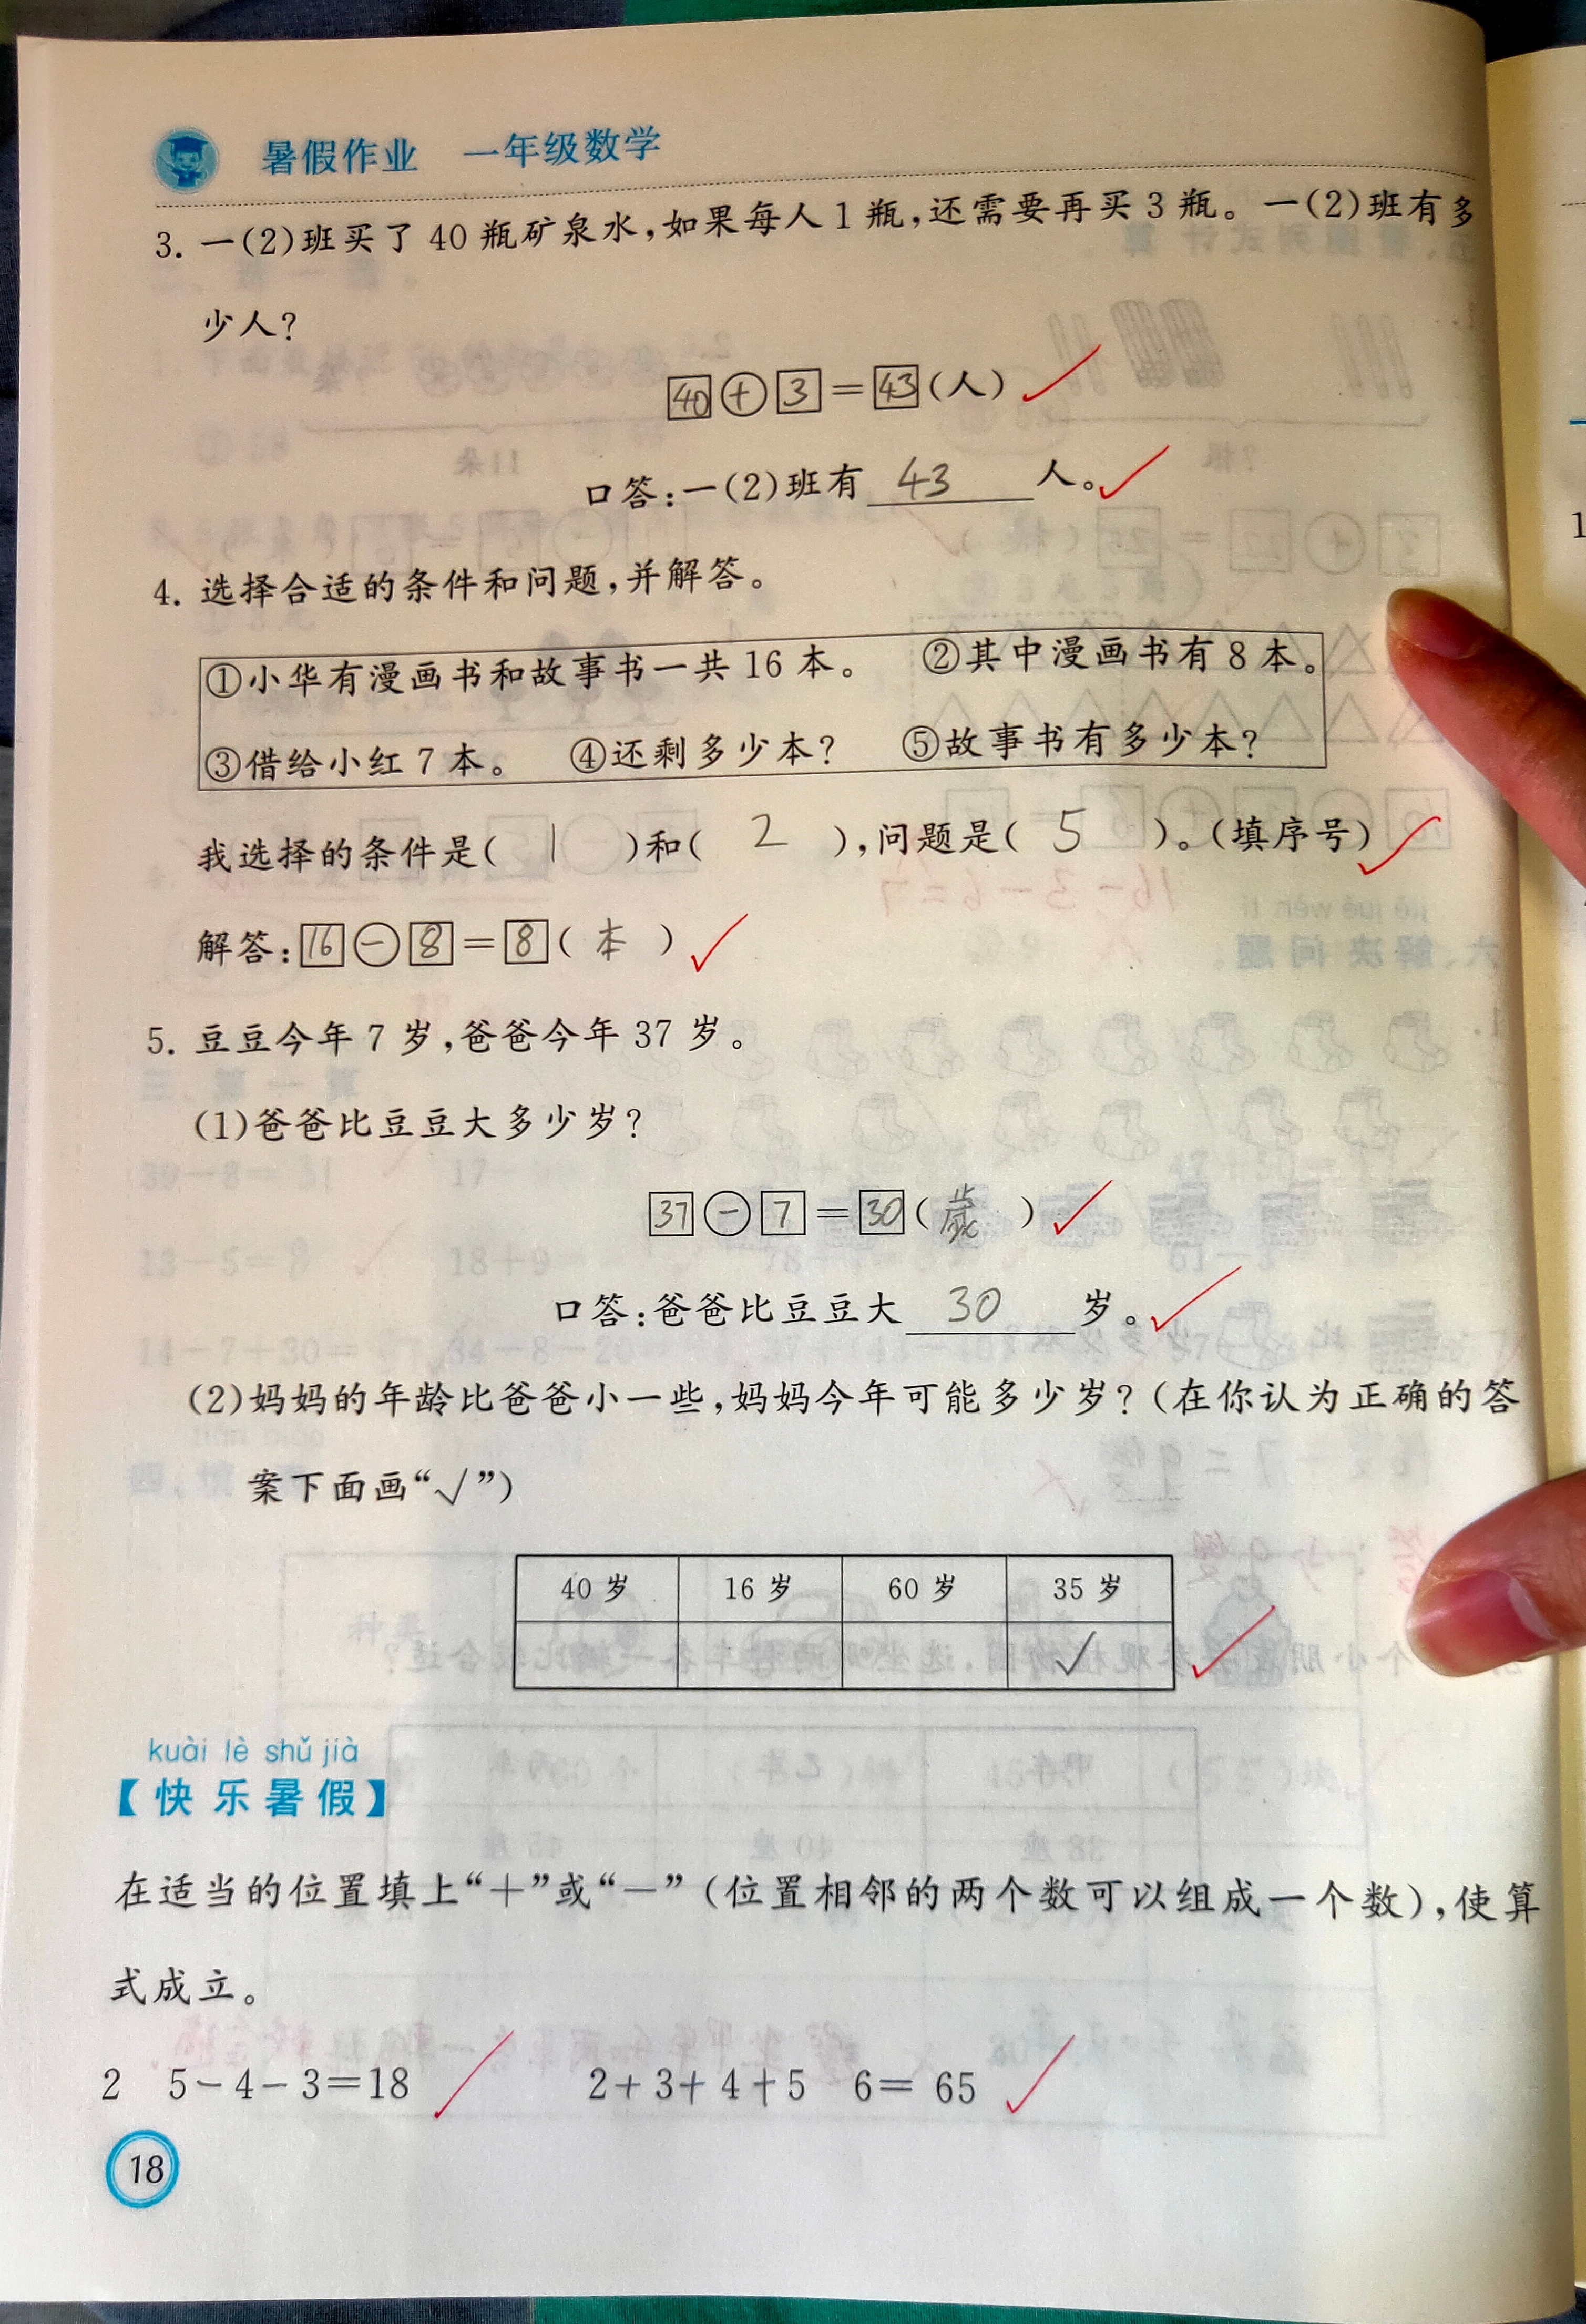 暑假作业 一年级数学
3. 一(2)班买了 40 瓶矿泉水,如果每人 1 瓶,还需要再买 3 瓶。一(2)班有多
少人?
40+3=43(人)
口答:一(2)班有 43 人。
4. 选择合适的条件和问题,并解答。
①小华有漫画书和故事书一共 16 本。 ②其中漫画书有 8 本。
③借给小红 7 本。 ④还剩多少本? ⑤故事书有多少本?
我选择的条件是( 1 )和( 2 ),问题是( 5 )。(填序号)
解答:16-8=8(本)
5. 豆豆今年 7 岁,爸爸今年 37 岁。
(1)爸爸比豆豆大多少岁?
37-7=30(歲)
口答:爸爸比豆豆大 30 岁。
(2)妈妈的年龄比爸爸小一些,妈妈今年可能多少岁?(在你认为正确的答
案下面画“√”)
40 岁 16 岁 60 岁 35 岁
√
kuài lè shǔ jià
【快乐暑假】
在适当的位置填上“+”或“-”(位置相邻的两个数可以组成一个数),使算
式成立。
2 5-4-3=18 2+3+4+5 6= 65
18